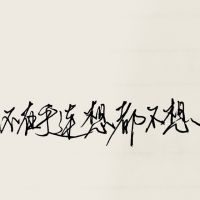 不在乎连想都不想、